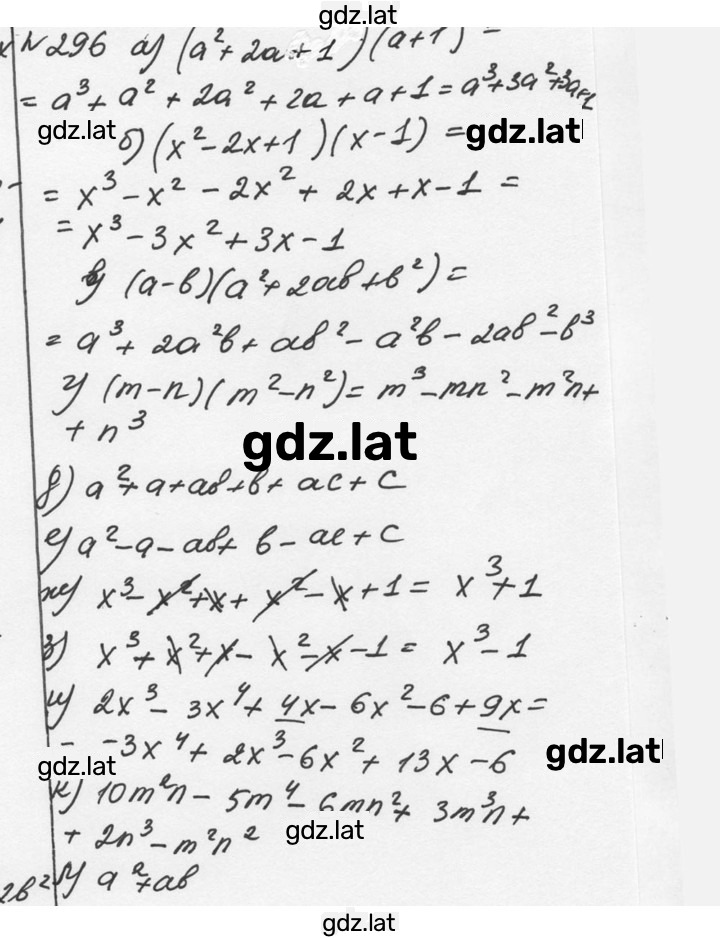 gdz.lat
№296 а) (a²+2a+1)(a+1) =
= a³+a²+2a²+2a+a+1 = a³+3a²+3a+1
gdz.lat
б) (x²-2x+1)(x-1) =
gdz.lat
= x³-x²-2x²+2x+x-1 =
= x³-3x²+3x-1
в) (a-b)(a²+2ab+b²) =
= a³+2a²b+ab²-a²b-2ab²-b³
г) (m-n)(m²-n²) = m³-mn²-m²n+
+n³
gdz.lat
д) a²+a+ab+b+ac+c
е) a²-a-ab+b-ac+c
ж) x³-x²+x+x²-x+1 = x³+1
з) x³+x²+x-x²-x-1 = x³-1
и) 2x³-3x⁴+4x-6x²-6+9x =
= -3x⁴+2x³-6x²+13x-6
gdz.lat
gdz.lat
к) 10m²n-5m⁴-6mn²+3m³n+
+2n³-m²n²
gdz.lat
2b²
л) a²+ab
gdz.lat